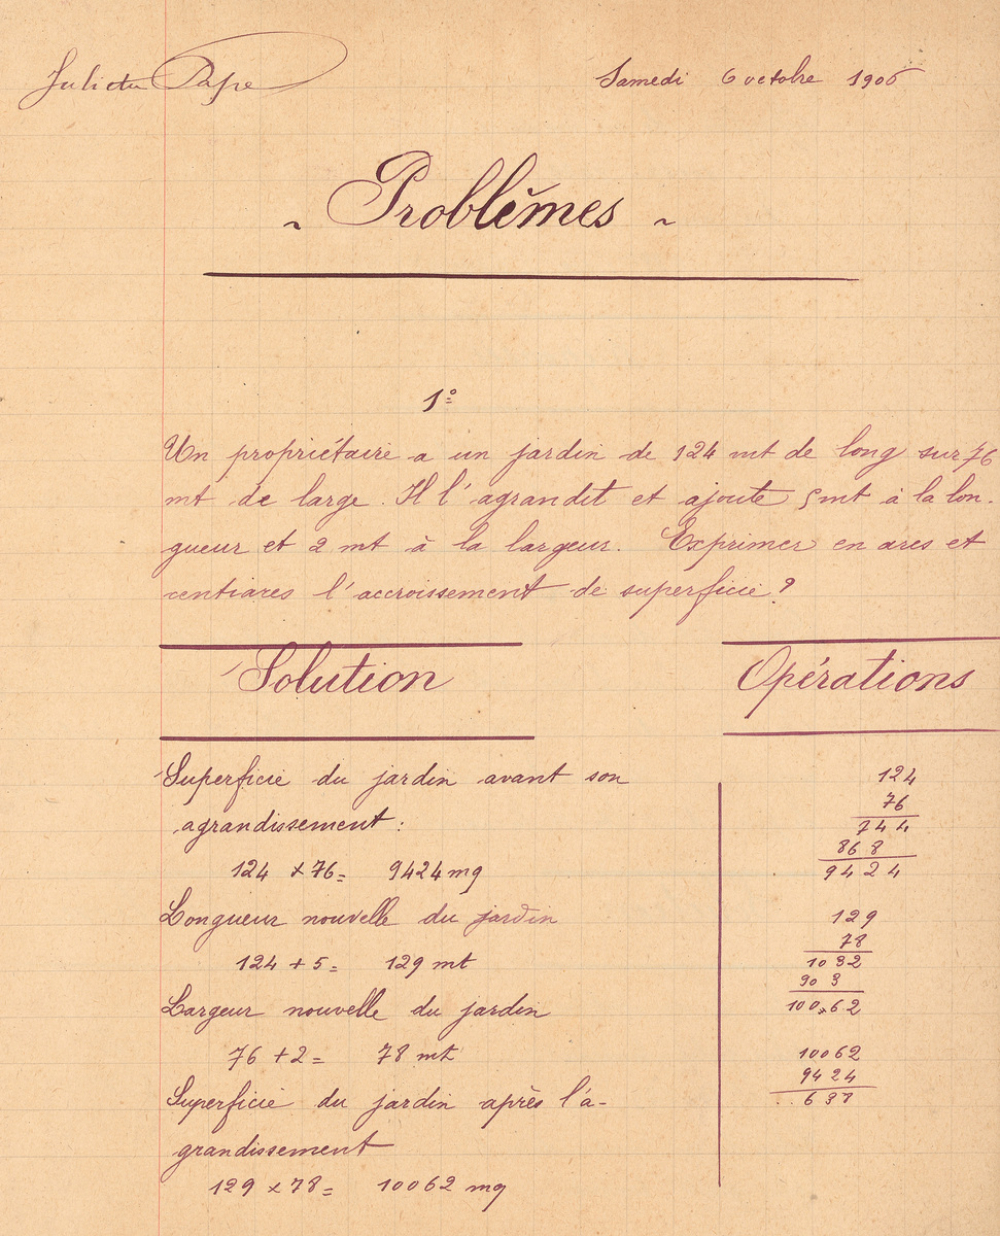 Pape Samedi 6 octobre 1906
~ Problèmes ~
1º
Un propriétaire a un jardin de 124 mt de long sur 76
mt de large. Il l'agrandit et ajoute 5mt à la lon-
gueur et 2 mt à la largeur. Exprimer en ares et
centiares l'accroissement de superficie ?
Solution
Opérations
Superficie du jardin avant son
agrandissement :
124 x 76 = 9424 mq
Longueur nouvelle du jardin
124 + 5 = 129 mt
Largeur nouvelle du jardin
76 + 2 = 78 mt
Superficie du jardin après l'a-
grandissement
129 x 78 = 10062 mq
124
76
744
868
9424
129
78
1032
903
100.62
10062
9424
..638